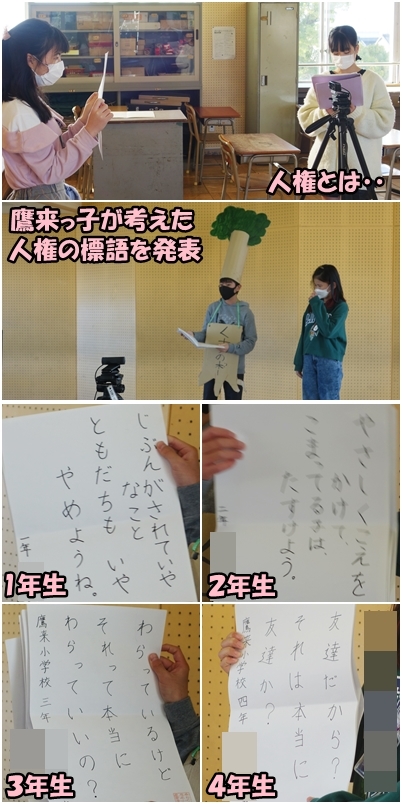 人権とは‥
鷹来っ子が考えた
人権の標語を発表
じぶんがされていや
なこと
ともだちも いや
やめようね。
一年
1年生
やさしくこえを
かけて、
こまってるときは、
たすけよう。
二年
2年生
わらっているけど
それって本当に
わらっていいの？
鷹来小学校 三年
3年生
友達だから？
それは本当に
友達か？
鷹来小学校 四年
4年生